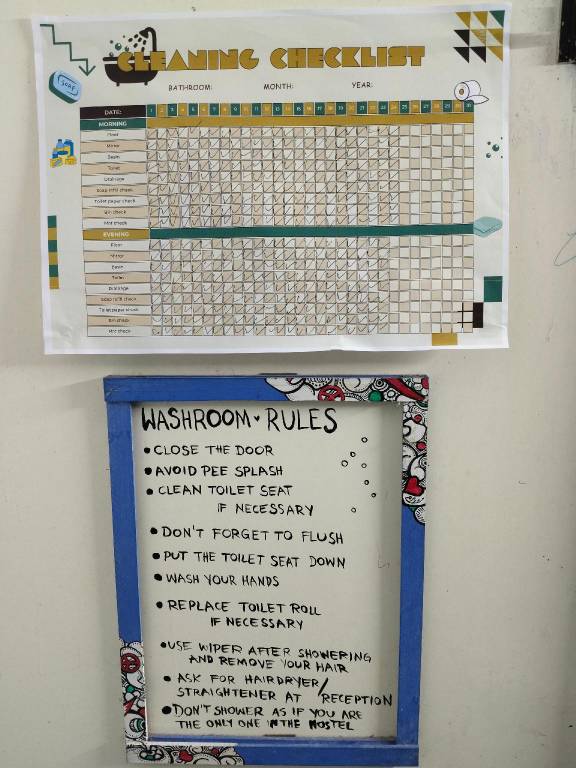 CLEANING CHECKLIST
BATHROOM: MONTH: YEAR:
SOAP
DATE: 1 2 3 4 5 6 7 8 9 10 11 12 13 14 15 16 17 18 19 20 21 22 23 24 25 26 27 28 29 30 31
MORNING
Floor
Mirror
Basin
Toilet
Drainage
Soap refill check
Toilet paper check
Bin check
Mat check
EVENING
Floor
Mirror
Basin
Toilet
Drainage
Soap refill check
Toilet paper check
Bin check
Mat check
WASHROOM RULES
• CLOSE THE DOOR
• AVOID PEE SPLASH
• CLEAN TOILET SEAT
IF NECESSARY
• DON'T FORGET TO FLUSH
• PUT THE TOILET SEAT DOWN
• WASH YOUR HANDS
• REPLACE TOILET ROLL
IF NECESSARY
• USE WIPER AFTER SHOWERING
AND REMOVE YOUR HAIR
• ASK FOR HAIRDRYER/
STRAIGHTENER AT RECEPTION
• DON'T SHOWER AS IF YOU ARE
THE ONLY ONE IN THE HOSTEL